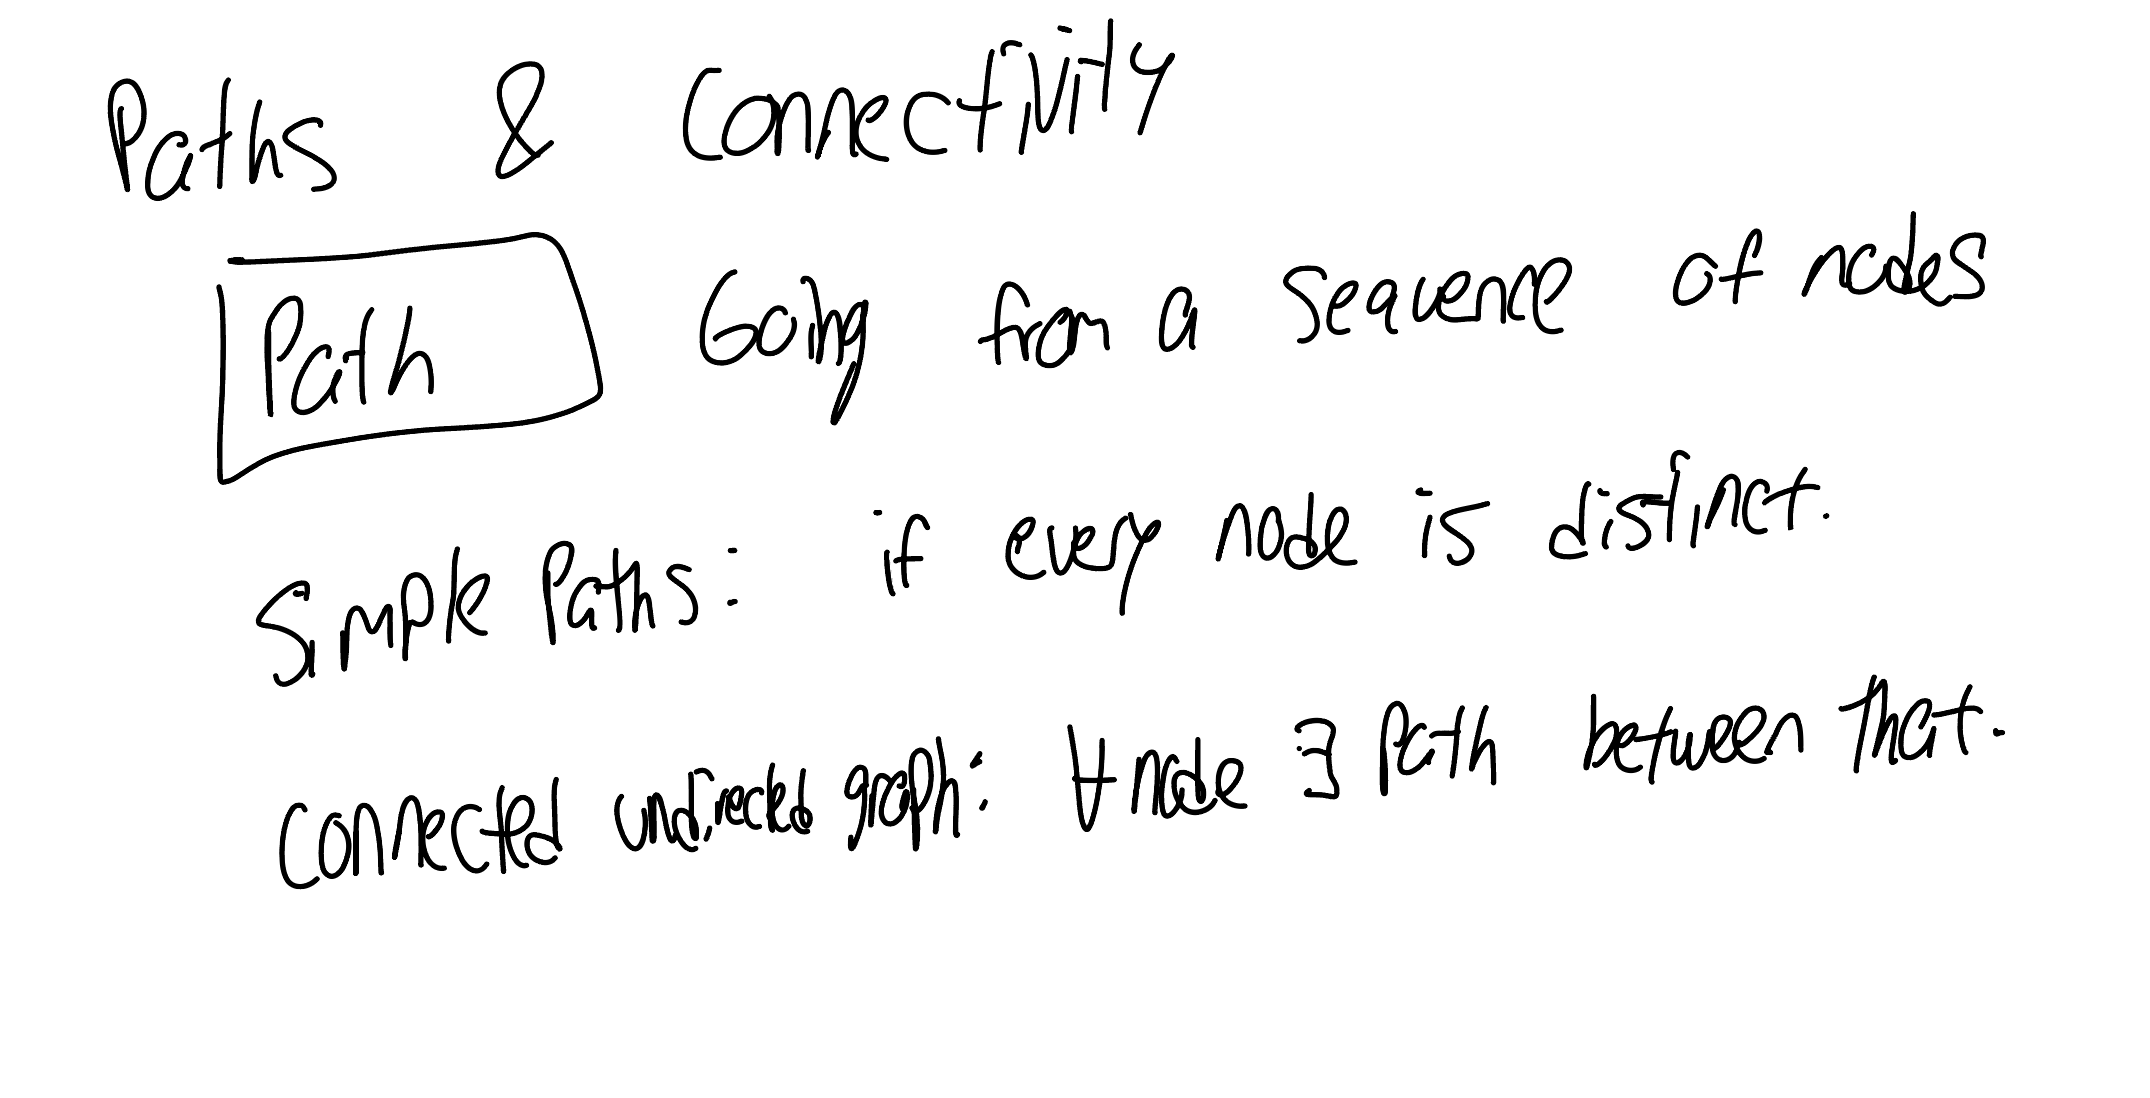 Paths & Connectivity
Path Going from a sequence of nodes
Simple Paths: if every node is distinct.
Connected undirected graph: ∀ node ∃ Path between that.